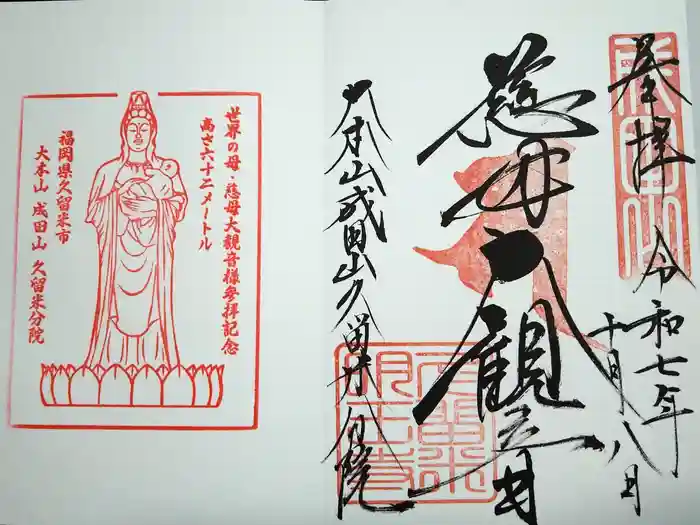 奉拝
令和七年
十月八日
慈母大観音
大本山成田山久留米分院
成田山
世界の母・慈母大観音様参拝記念
高さ六十二メートル
福岡県久留米市
大本山 成田山 久留米分院